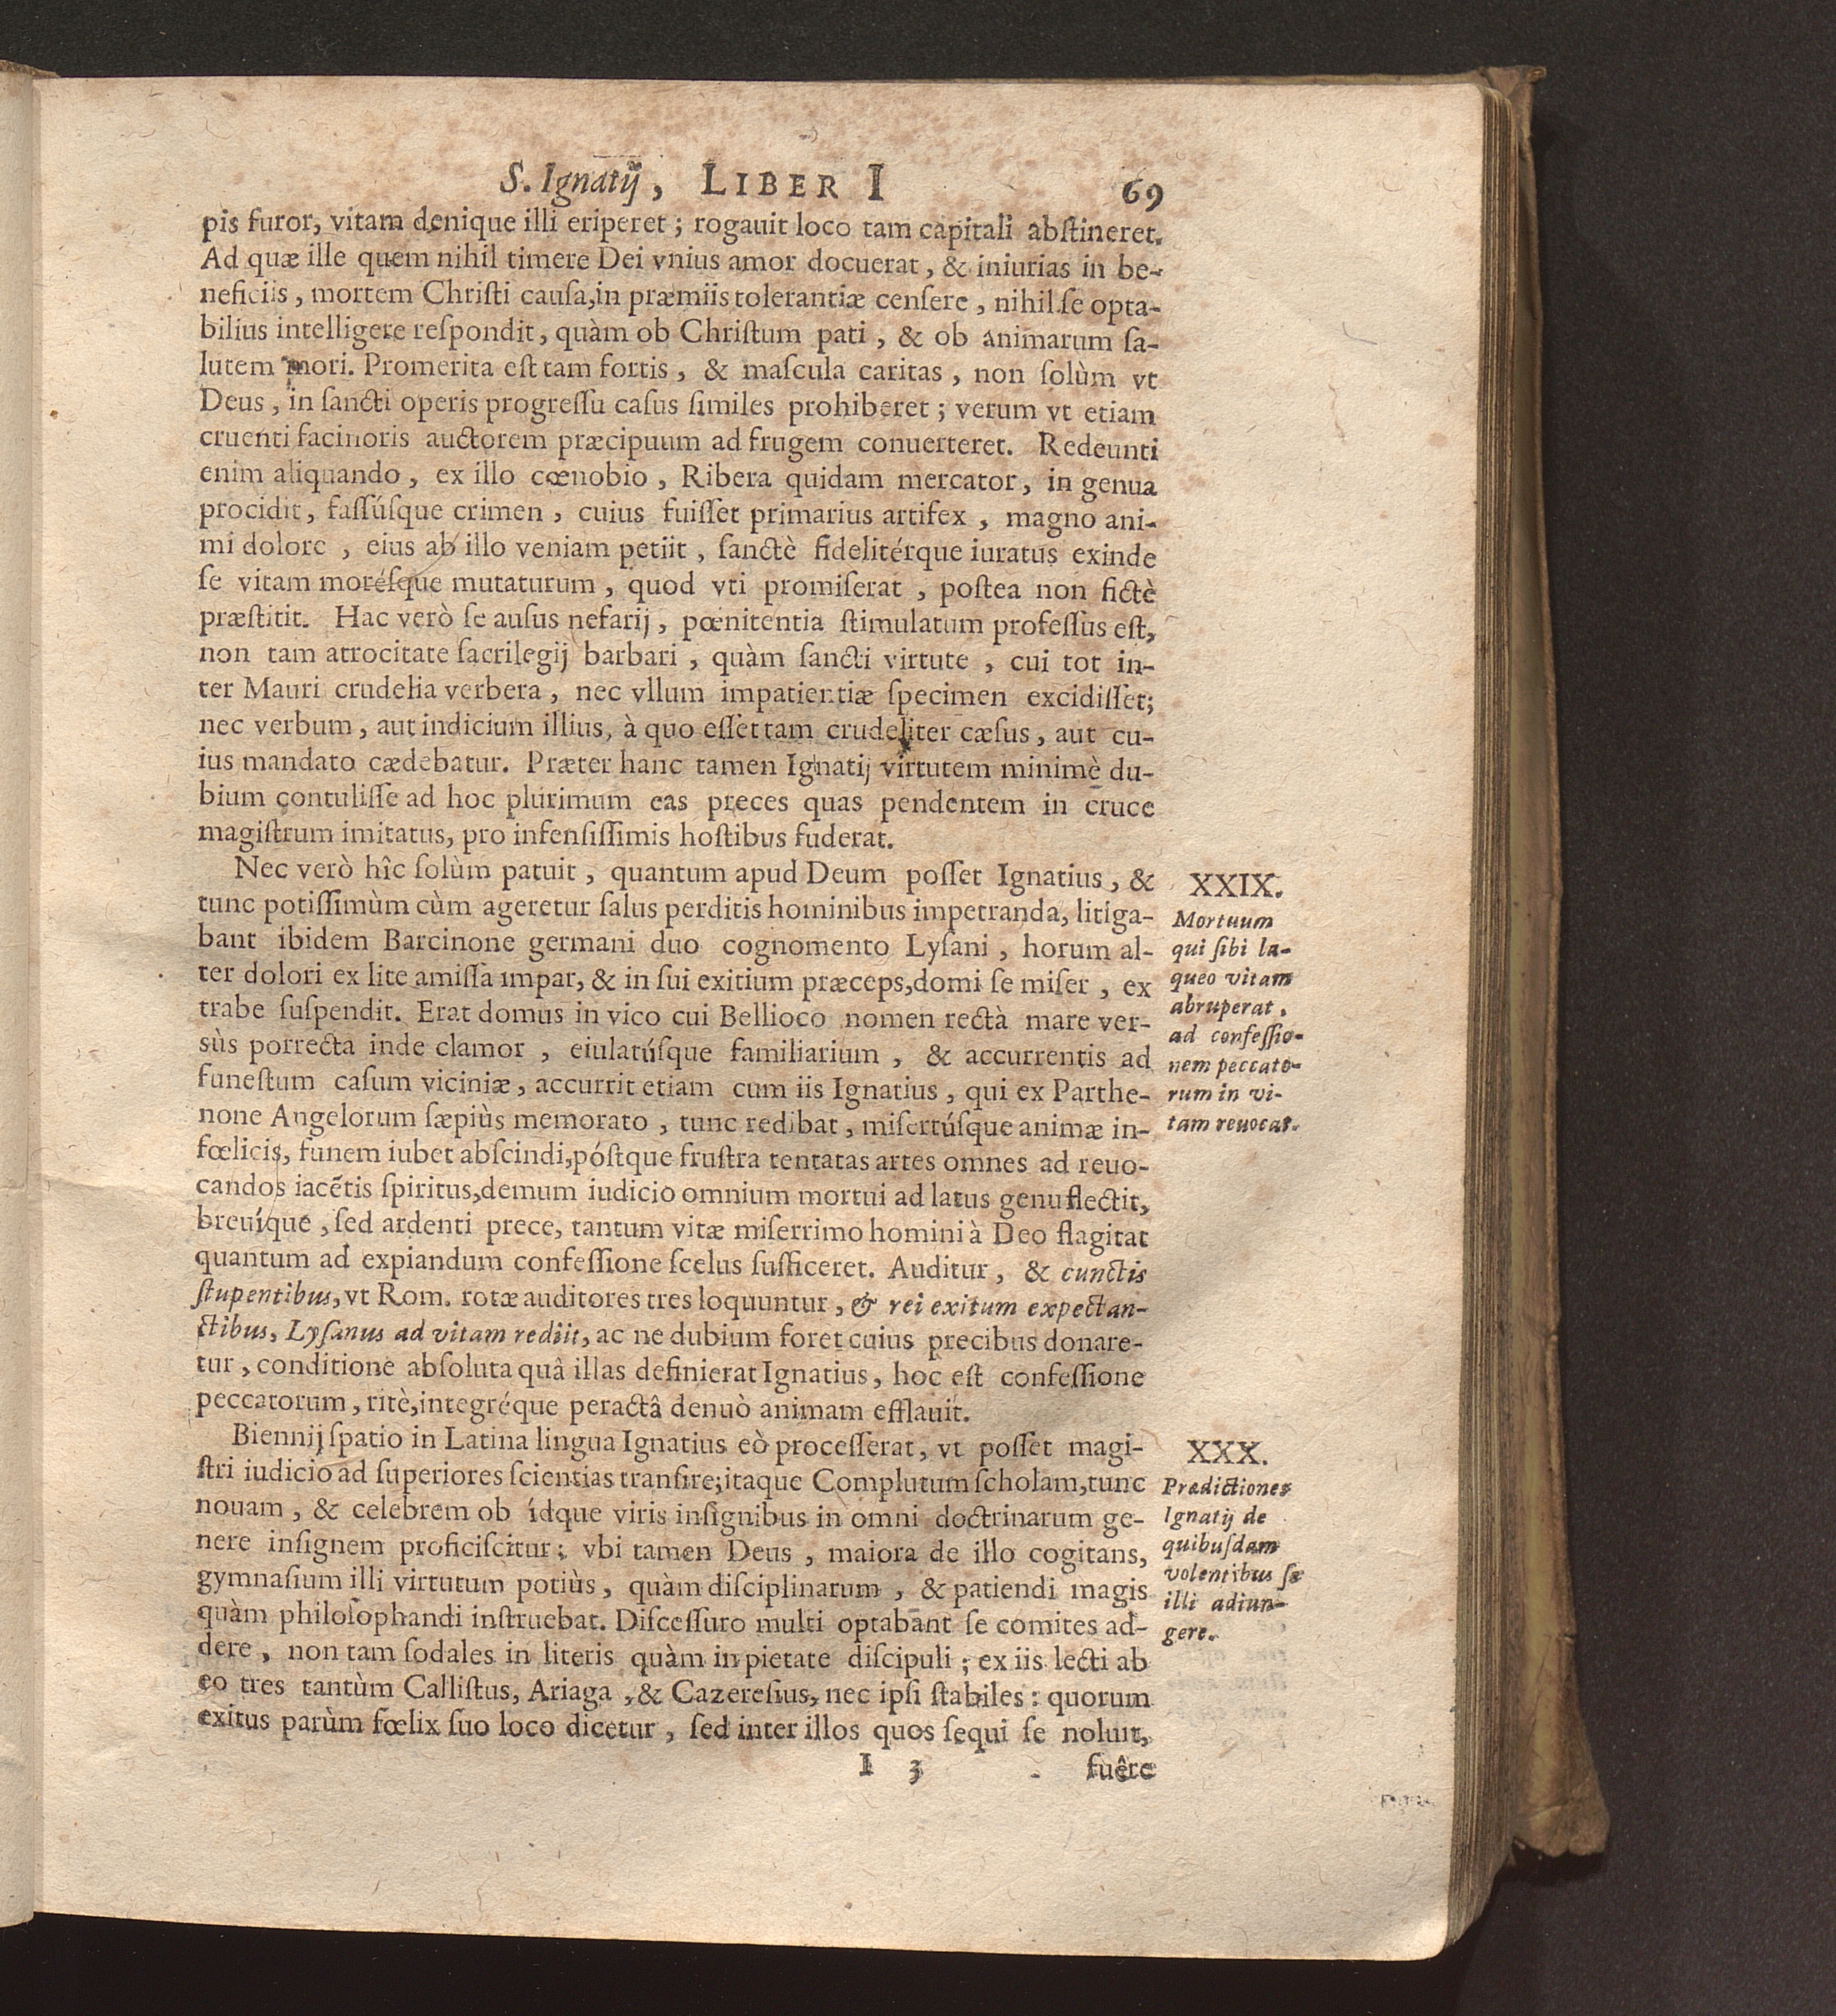 S. Ignatij, LIBER I 69
pis furor, vitam denique illi eriperet; rogauit loco tam capitali abſtineret.
Ad quæ ille quem nihil timere Dei vnius amor docuerat, & iniurias in be-
neficiis, mortem Chriſti cauſa,in præmiis tolerantiæ cenſere, nihil ſe opta-
bilius intelligere reſpondit, quàm ob Chriſtum pati, & ob animarum ſa-
lutem mori. Promerita eſt tam fortis, & maſcula caritas, non ſolùm vt
Deus, in ſancti operis progreſſu caſus ſimiles prohiberet; verum vt etiam
cruenti facinoris auctorem præcipuum ad frugem conuerteret. Redeunti
enim aliquando, ex illo cœnobio, Ribera quidam mercator, in genua
procidit, faſſúſque crimen, cuius fuiſſet primarius artifex, magno ani-
mi dolore, eius ab illo veniam petiit, ſanctè fidelitérque iuratus exinde
ſe vitam moréſque mutaturum, quod vti promiſerat, poſtea non fictè
præſtitit. Hac verò ſe auſus nefarij, pœnitentia ſtimulatum profeſſus eſt,
non tam atrocitate ſacrilegij barbari, quàm ſancti virtute, cui tot in-
ter Mauri crudelia verbera, nec vllum impatientiæ ſpecimen excidiſſet;
nec verbum, aut indicium illius, à quo eſſet tam crudeliter cæſus, aut cu-
ius mandato cædebatur. Præter hanc tamen Ignatij virtutem minimè du-
bium contuliſſe ad hoc plurimum eas preces quas pendentem in cruce
magiſtrum imitatus, pro infenſiſſimis hoſtibus fuderat.
Nec verò hîc ſolùm patuit, quantum apud Deum poſſet Ignatius, &
tunc potiſſimùm cùm ageretur ſalus perditis hominibus impetranda, litiga-
bant ibidem Barcinone germani duo cognomento Lyſani, horum al-
ter dolori ex lite amiſſa impar, & in ſui exitium præceps,domi ſe miſer, ex
trabe ſuſpendit. Erat domus in vico cui Bellioco nomen rectà mare ver-
sùs porrecta inde clamor, eiulatúſque familiarium, & accurrentis ad
funeſtum caſum viciniæ, accurrit etiam cum iis Ignatius, qui ex Parthe-
none Angelorum ſæpiùs memorato, tunc redibat, miſertúſque animæ in-
fœlicis, funem iubet abſcindi,póſtque fruſtra tentatas artes omnes ad reuo-
candos iacẽtis ſpiritus,demum iudicio omnium mortui ad latus genu flectit,
breuíque, ſed ardenti prece, tantum vitæ miſerrimo homini à Deo flagitat
quantum ad expiandum confeſſione ſcelus ſufficeret. Auditur, & cunctis
ſtupentibus, vt Rom. rotæ auditores tres loquuntur, & rei exitum expectan-
ctibus, Lyſanus ad vitam rediit, ac ne dubium foret cuius precibus donare-
tur, conditione abſoluta quâ illas definierat Ignatius, hoc eſt confeſſione
peccatorum, ritè,integréque peractâ denuò animam efflauit.
XXIX.
Mortuum
qui ſibi la-
queo vitam
abruperat,
ad confeſſio-
nem peccato-
rum in vi-
tam reuocat.
Biennij ſpatio in Latina lingua Ignatius eò proceſſerat, vt poſſet magi-
ſtri iudicio ad ſuperiores ſcientias tranſire;itaque Complutum ſcholam,tunc
nouam, & celebrem ob ídque viris inſignibus in omni doctrinarum ge-
nere inſignem proficiſcitur; vbi tamen Deus, maiora de illo cogitans,
gymnaſium illi virtutum potiùs, quàm diſciplinarum, & patiendi magis
quàm philoſophandi inſtruebat. Diſceſſuro multi optabant ſe comites ad-
dere, non tam ſodales in literis quàm in pietate diſcipuli; ex iis lecti ab
eo tres tantùm Calliſtus, Ariaga, & Cazereſius, nec ipſi ſtabiles: quorum
exitus parùm fœlix ſuo loco dicetur, ſed inter illos quos ſequi ſe noluit,
XXX.
Prædictiones
Ignatij de
quibuſdam
volentibus ſe
illi adiun-
gere.
I 3 fuêre